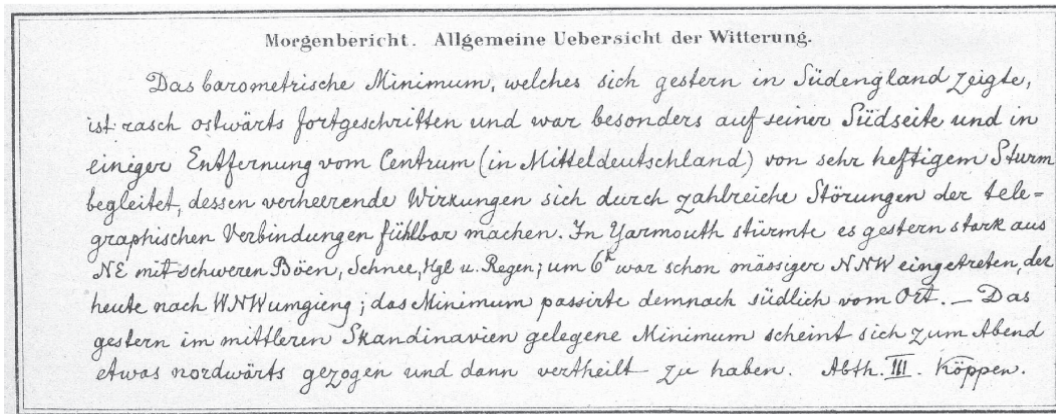 Morgenbericht. Allgemeine Uebersicht der Witterung.
Das barometrische Minimum, welches sich gestern in Südengland zeigte,
ist rasch ostwärts fortgeschritten und war besonders auf seiner Südseite und in
einiger Entfernung vom Centrum (in Mitteldeutschland) von sehr heftigem Sturm
begleitet, dessen verheerende Wirkungen sich durch zahlreiche Störungen der tele=
graphischen Verbindungen fühlbar machen. In Yarmouth stürmte es gestern stark aus
NE mit schweren Böen, Schnee, Hgl u. Regen; um 6h war schon mässiger NNW eingetreten, der
heute nach WNW umgieng; das Minimum passirte demnach südlich vom Ort. — Das
gestern im mittleren Skandinavien gelegene Minimum scheint sich zum Abend
etwas nordwärts gezogen und dann vertheilt zu haben. Abth. III. Köppen.